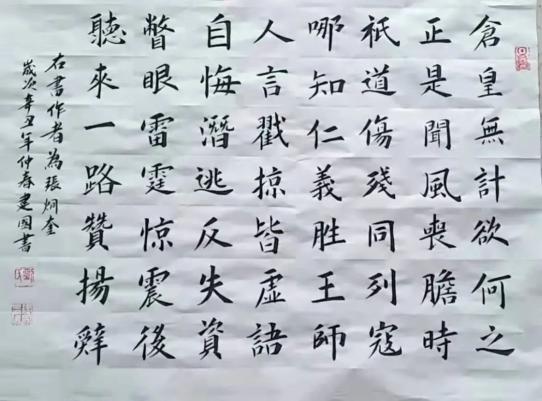 倉皇無計欲何之
正是聞風喪膽時
祇道傷殘同列寇
哪知仁義勝王師
人言戳掠皆虛語
自悔潛逃反失資
瞥眼雷霆惊震後
聽來一路贊揚辤
右書作者為張炯奎
歲次辛丑年仲春建國書